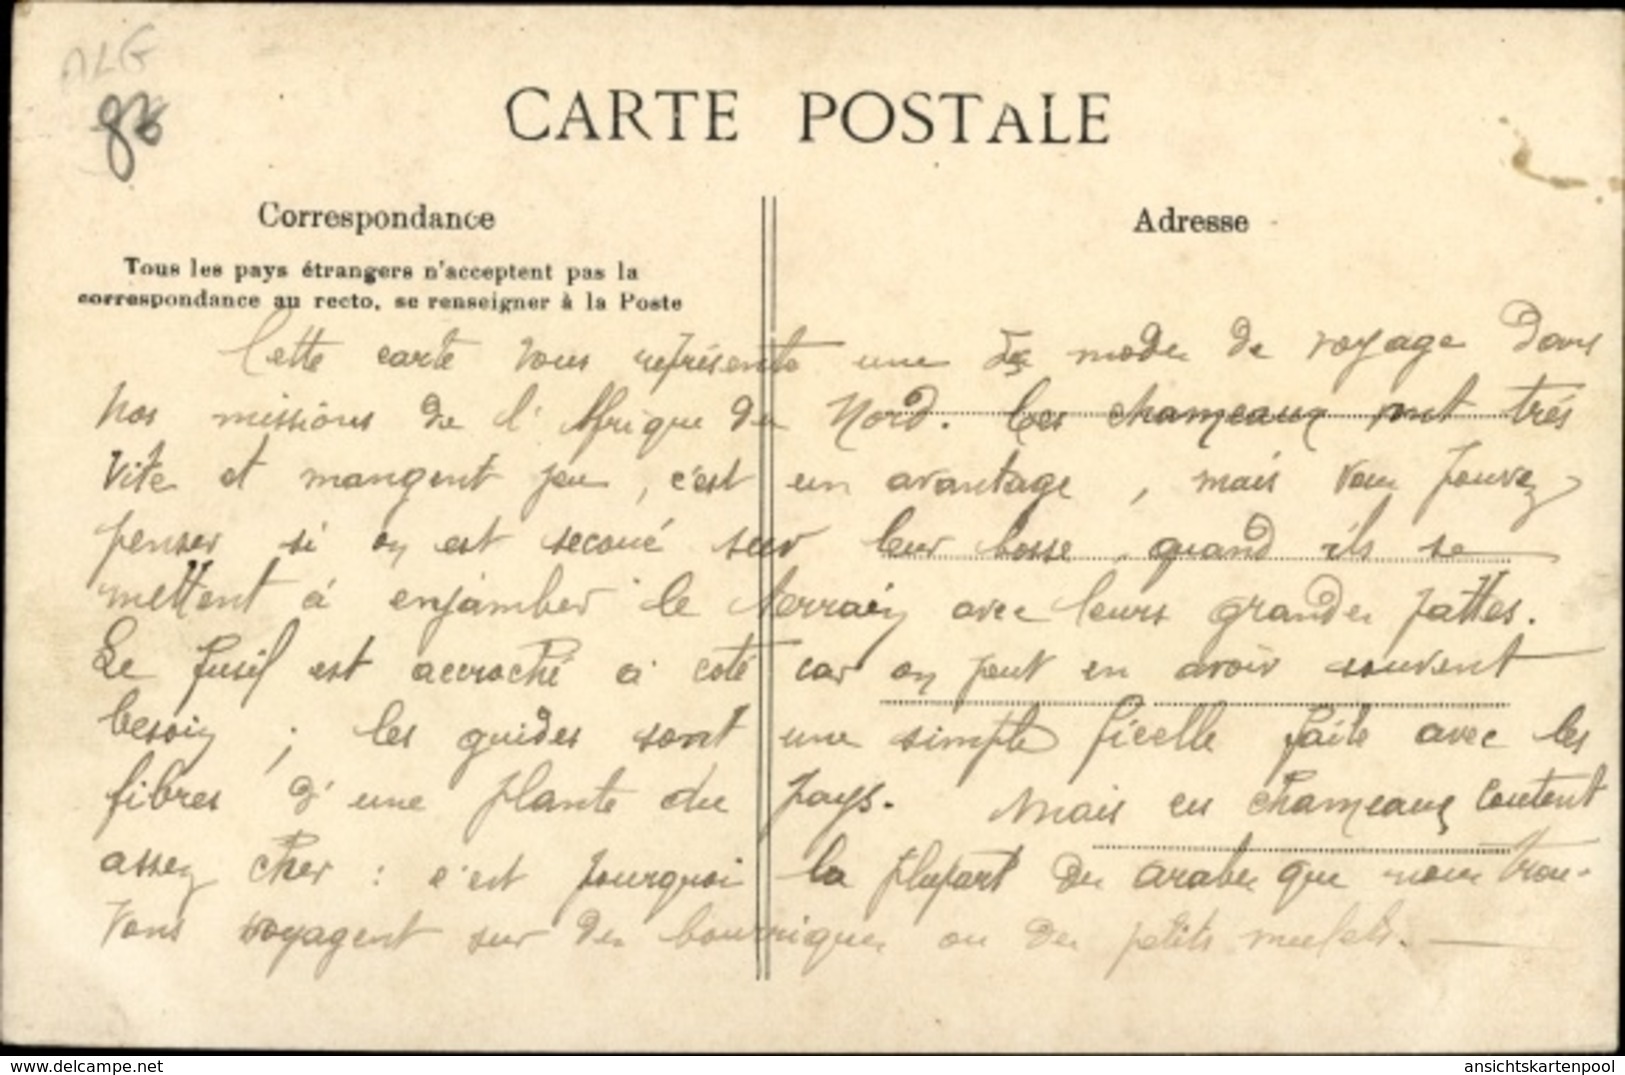 ALG
CARTE POSTALE
Correspondance
Adresse
Tous les pays étrangers n'acceptent pas la
correspondance au recto, se renseigner à la Poste
Cette carte vous représente une mode de voyage dans
nos missions de l'Afrique du Nord. Ces chameaux vont très
vite et mangent peu, c'est un avantage, mais vous pouvez
penser si on est secoué sur leur bosse, quand ils se
mettent à enjamber le terrain avec leurs grandes pattes.
Le fusil est accroché à coté car on peut en avoir souvent
besoin ; les guides sont une simple ficelle faite avec les
fibres d'une plante du pays. Mais ces chameaux coutent
assez cher : c'est pourquoi la plupart des arabes que nous trou-
vons voyagent sur des bourriques ou des petits mulets.
www.delcampe.net
ansichtskartenpool